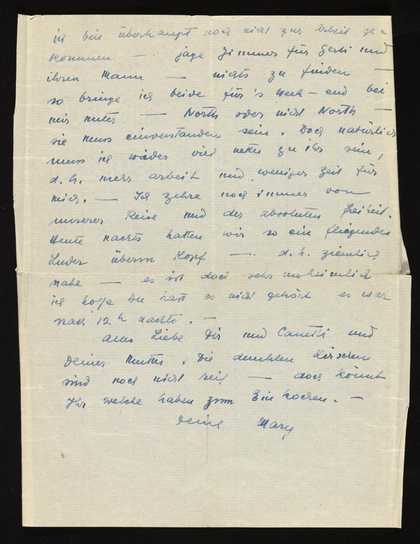 ich bin überhaupt noch nicht zur Arbeit ge-
kommen — jage Zimmer für Gerti und
ihren Mann — nichts zu finden
so bringe ich beide für's week-end bei
mir unter — North oder nicht North —
sie muss einverstanden sein. Doch natürlich
muss ich wieder viel netter zu ihr sein,
d.h. mehr arbeit und weniger Zeit für
mich. — Ich zehre noch immer von
unserer Reise und der absoluten Freiheit.
Heute nachts hatten wir so ein fliegendes
Luder überm Kopf — d.h. ziemlich
nahe — es ist doch sehr unheimlich
ich hoffe Du hast es nicht gehört es war
nach 12 h nachts. —
alles Liebe Dir und Canetti und
Deiner Mutter. Die dunklen Kirschen
sind noch nicht reif — doch könnt
Ihr welche haben zum Einkochen. —
Deine Mary